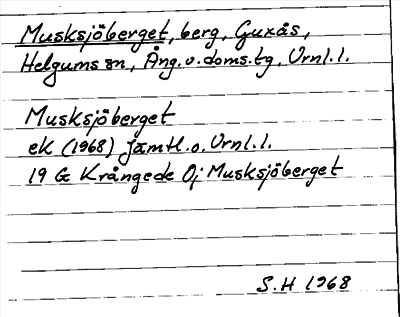 Musksjöberget, berg, Guxås,
Helgums sn, Ång. v. doms.tg, Vrnl.l.
Musksjöberget
ek (1968) Jämtl. o. Vrnl.l.
19 G Krångede Oj Musksjöberget
S.H 1968